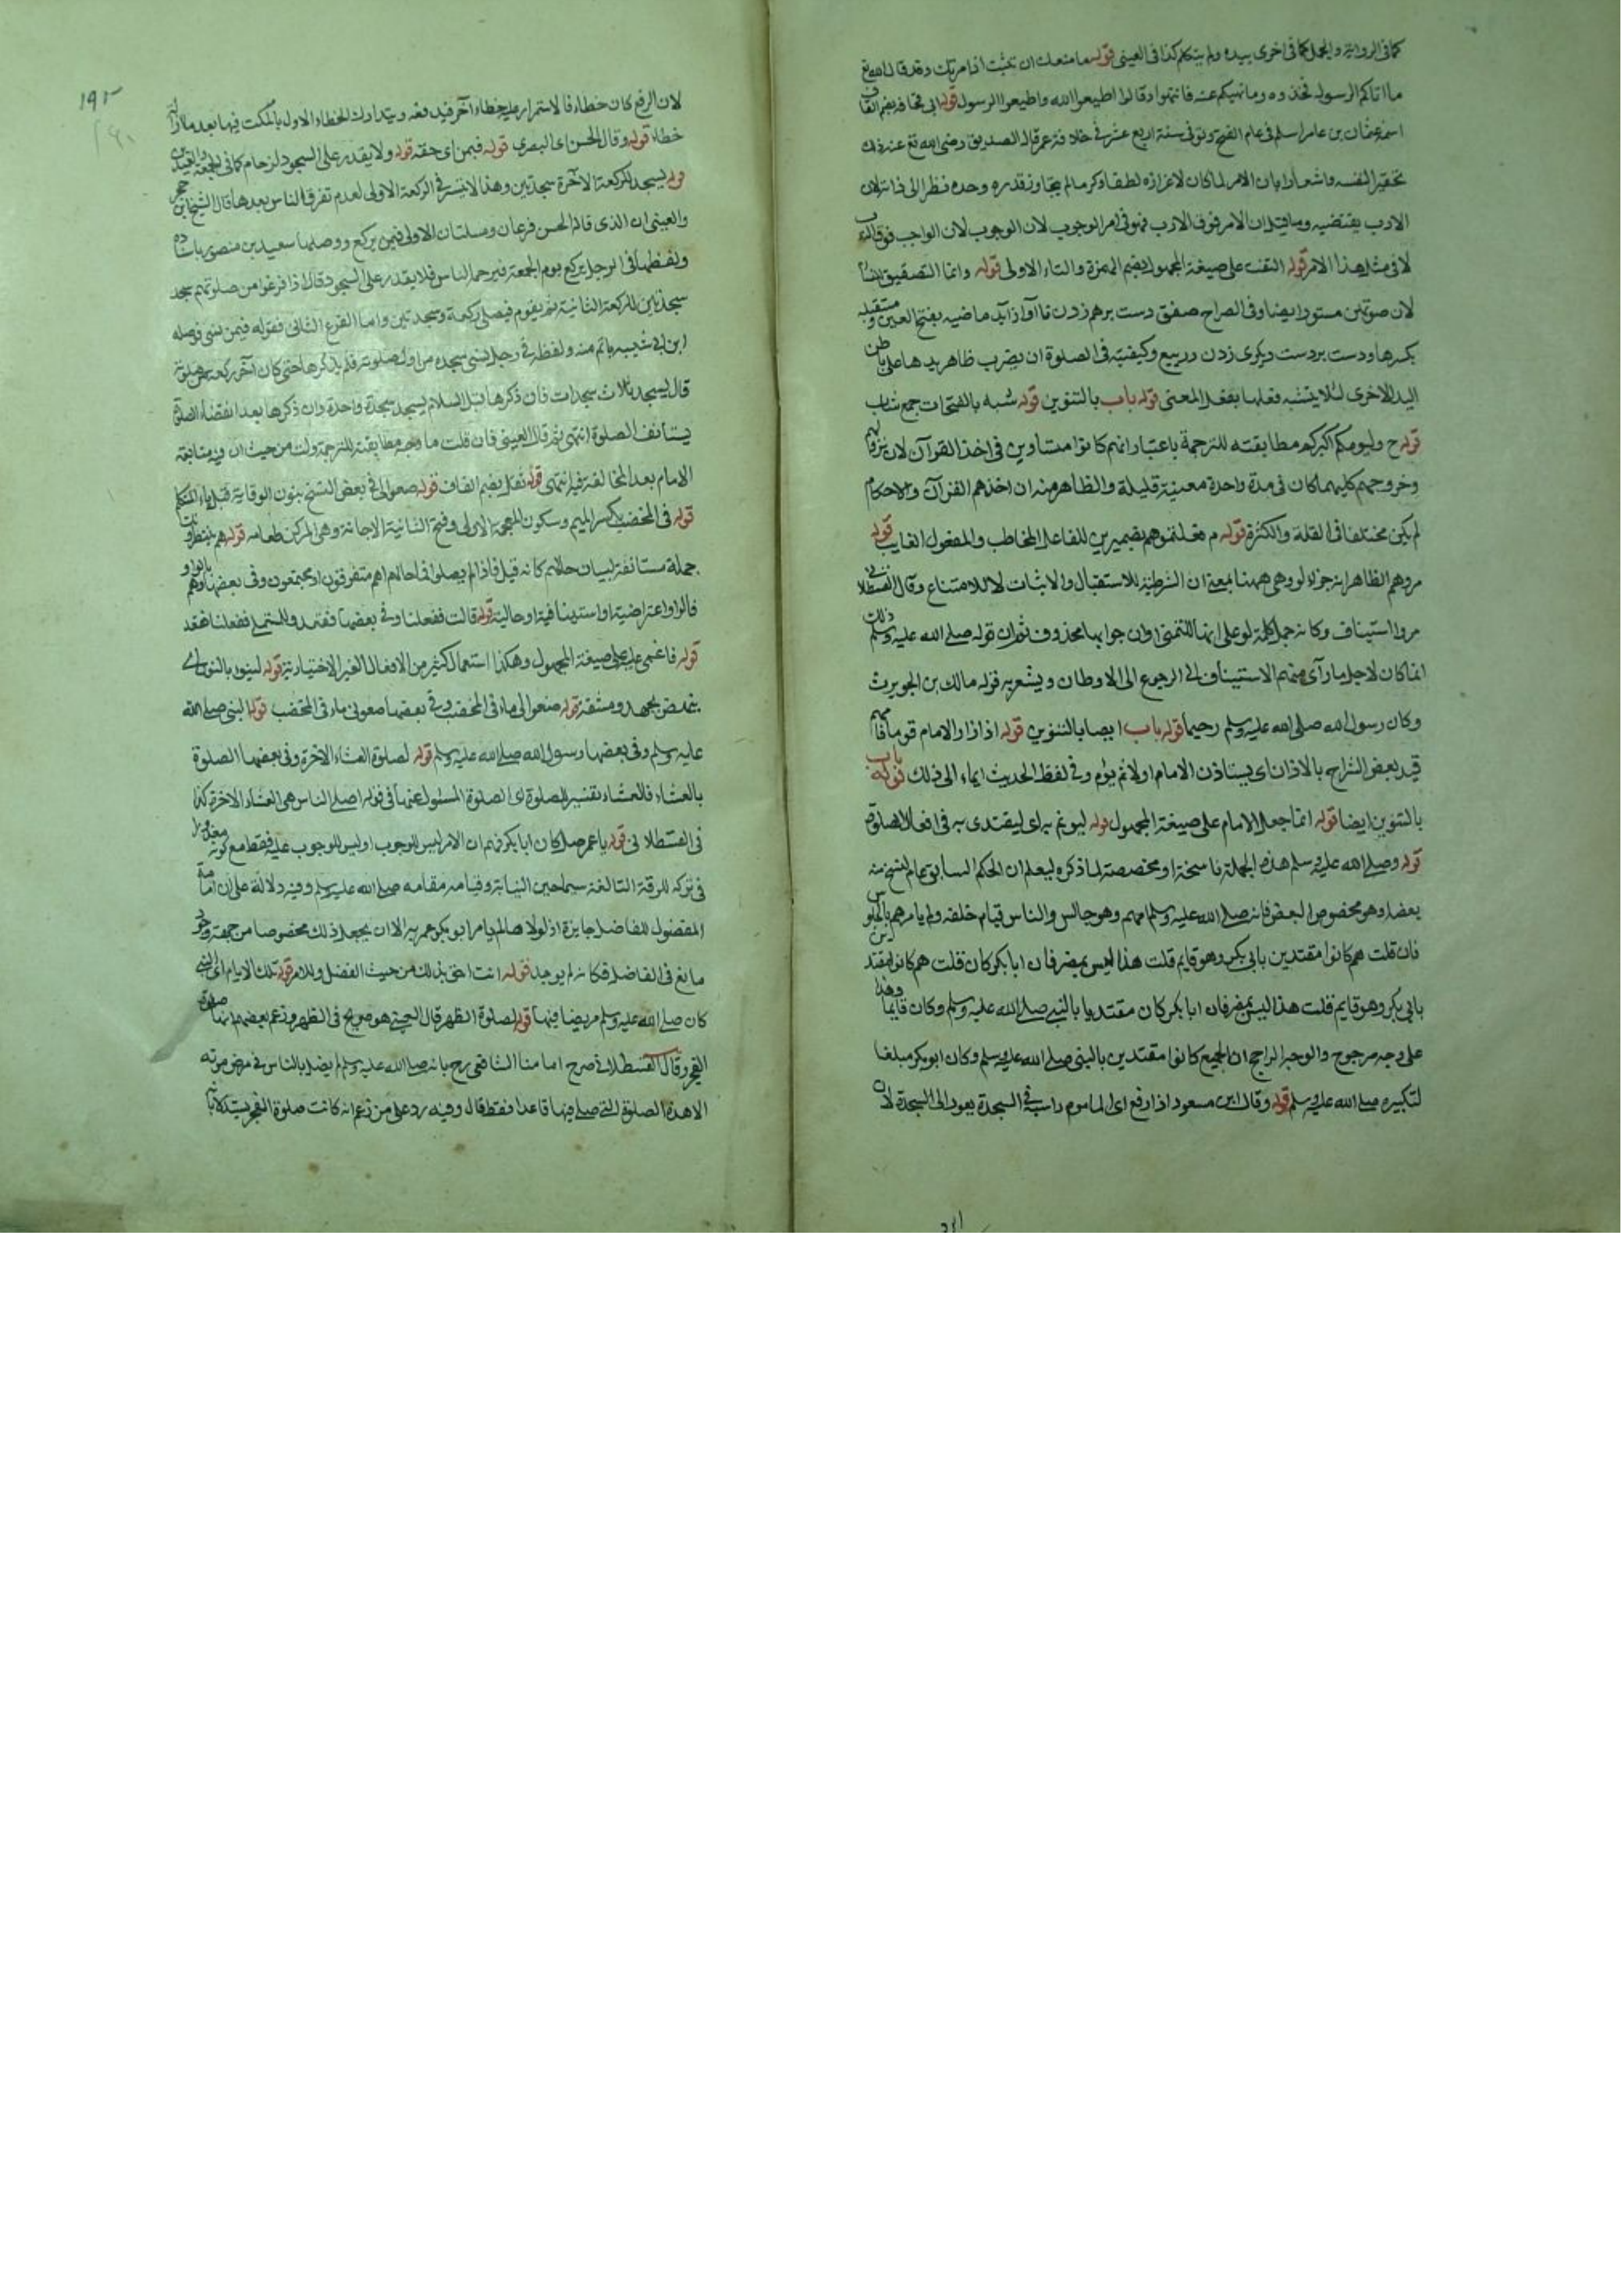 كما فى الرواية والحمل كما فى اخرى بيده ولم يتكلم كذا فى العينى قوله ما منعك ان تثبت اذ امرتك وقد قال الله تع
ما اتاكم الرسول فخذوه وما نهيكم عنه فانتهوا وقالوا اطيعوا الله واطيعوا الرسول قوله ابى قحافة بضم القاف
اسمه عثمان بن عامر اسلم فى عام الفتح وتوفى سنة اربع عشر فى خلافة عمر قال الصديق رضى الله تع عنه ذلك
تحقيرا لنفسه واشعارا بان الامر لما كان لاعزازه لطفا وكرما لم يتجاوز قدره وحده نظرا الى ذاته لان
الادب يقتضيه وما قيل ان الامر فوق الادب فهو فى امر الوجوب لان الوجوب لان الواجب فوق الادب
لا فى مثل هذا الامر قوله التفت على صيغة المجهول بضم الهمزة والتاء الاولى قوله وانما التصفيق للنساء
لان صوتهن مستور ايضا وفى الصراح صفق دست برهم زدن تا آواز آيد ماضيه بفتح العين ومستقبله
بكسرها ودست بردست ديكرى زدن در بيع وكيفيته فى الصلوة ان يضرب ظاهر يدها على باطن
اليد الاخرى لئلا يتشبه فعلها بفعل المعنى قوله باب بالتنوين قوله شبه بالفتحات جمع شاب
قوله ح وليومكم اكبركم مطابقته للترجمة باعتبار انهم كانوا متساوين فى اخذ القرآن لان نزولهم
وخروجهم كليهما كان فى مدة واحدة معينة قليلة والظاهر منه ان اخذهم القرآن والاحكام
لم يكن مختلفا فى القلة والكثرة قوله م فعلمتموهم بضميرين للفاعل المخاطب والمفعول الغايب قوله
مروهم الظاهر انه جزاء لو وهى ههنا بمعنى ان الشرطية للاستقبال والاثبات لا للامتناع وقال القسطلانى
مروا استيناف وكانه حمل كلمة لو على انها للتمنى او ان جوابها محذوف ثم ان قوله صلى الله عليه وسلم ذلك
انما كان لاجل ما رآى منهم الاستيناف الى الرجوع الى الاوطان ويشعر به قوله مالك بن الحويرث
وكان رسول الله صلى الله عليه وسلم رحيما قوله باب ايضا بالتنوين قوله اذا زار الامام قوما فامهم
قيد بعض الشراح بالاذن اى يستاذن الامام اولا ثم يؤم وفى لفظ الحديث ايماء الى ذلك قوله باب
بالتنوين ايضا قوله انما جعل الامام على صيغة المجهول قوله ليؤتم به اى ليقتدى به فى افعال الصلوة
قوله وصلى الله عليه وسلم هذه الجملة ناسخة او مخصصة لما ذكره ليعلم ان الحكم السابق عام النسخ منه
بعضه او هو مخصوص البعض فانه صلى الله عليه وسلم امهم وهو جالس والناس قيام خلفه ولم يامرهم بالجلوس
فان قلت هم كانوا مقتدين بابى بكر وهو قايم قلت هذا ليس بمضر فان ابا بكر كان قلت هم كانوا مقتدين
بابى بكر وهو قايم قلت هذا ليس بمضر فان ابا بكر كان مقتديا بالنبى صلى الله عليه وسلم وكان قايما وهذا
على وجه مرجوح والوجه الراجح ان الجميع كانوا مقتدين بالنبى صلى الله عليه وسلم وكان ابو بكر مبلغا
لتكبيره صلى الله عليه وسلم قوله وقال ابن مسعود اذا رفع اى الماموم راسه فى السجدة يعود الى السجدة لان
١٩٢
لان الرفع كان خطاء فالاستمرار عليه خطاء آخر فيدفعه ويتدارك الخطاء الاول بالمكث فيها بعد ما زاله
خطاء قوله وقال الحسن اى البصرى قوله فيمن اى حقه قوله ولا يقدر على السجود لزحام كما فى الجمعة والعيدين
قوله يسجد للركعة الآخرة سجدتين وهذا لا يتيسر فى الركعة الاولى لعدم تفرق الناس بعدها قال الشيخ ابن حجر
والعينى ان الذى قاله الحسن فرعان ومسئلتان الاولى فيمن يركع ووصلها سعيد بن منصور باسناده
ولفظها فى الرجل يركع يوم الجمعة فيزحمه الناس فلا يقدر على السجود قال اذا فرغوا من صلوتهم سجد
سجدتين للركعة الثانية ثم يقوم فيصلى ركعة وسجدتين واما الفرع الثانى فقوله فيمن نسى فوصله
ابن ابى شيبه باتم منه ولفظه فى رجل نسى سجدة من اول صلوته فلم يذكرها حتى كان آخر ركعة من صلوته
قال يسجد ثلاث سجدات فان ذكرها قبل السلام يسجد سجدة واحدة وان ذكرها بعد انقضاء الصلوة
يستانف الصلوة انتهى ثم قال العينى فان قلت ما وجه مطابقته للترجمة قلت من حيث ان فيه متابعة
الامام بعد المخالفة فيه انتهى قوله ثقل بضم القاف قوله ضعوا لى فى بعض النسخ بنون الوقاية قبل ياء المتكلم
قوله فى المخضب بكسر الميم وسكون المعجمة الاولى وفتح الثانية الاجانة وهى المركن قوله هم ينتظرونك
جملة مستانفة لبيان حالهم كانه قيل فاذا لم يصلوا فى احالهم اهم متفرقون او مجتمعون وفى بعضها وهم بالواو
فالواو اعتراضية او استينافية او حالية قوله قالت ففعلنا وفى بعضها فقعد وللمستملى ففعلنا فقعد
قوله فاغمى عليه على صيغة المجهول وهكذا استعمال كثير من الافعال الغير الاختيارية قوله لينوء بالنون اى
ينهض بجهد ومشقة قوله ضعوا لى ماء فى المخضب وفى بعضها ضعونى ماء فى المخضب قوله النبى صلى الله
عليه وسلم وفى بعضها رسول الله صلى الله عليه وسلم قوله لصلوة العشاء الآخرة وفى بعضها الصلوة
بالعشاء فالعشاء تفسير للصلوة اى الصلوة المسئول عنها فى قوله اصلى الناس هى العشاء الآخرة كذا
فى القسطلانى قوله يا عمر صل كان ابا بكر فهم ان الامر ليس للوجوب او ليس للوجوب عليه فقط مع كونه معذورا
فى تركه للرقة التالفة سيما حين النيابة وقيامه مقامه صلى الله عليه وسلم وفيه دلالة على ان امامة
المفضول للفاضل جايزة اذ لولا ها لم يامر ابو بكر عمر به الا ان يجعل ذلك مخصوصا من جهة وجود
مانع فى الفاضل فكانه لم يوجد قوله انت احق بذلك من حيث الفضل وللامر قوله تلك الايام اى التى
كان صلى الله عليه وسلم مريضا فيها قوله لصلوة الظهر قال العينى هو صريح فى الظهر وزعم بعضهم انها صلوة
الفجر وقال القسطلانى صرح امامنا الشافعى رح بانه صلى الله عليه وسلم لم يصل بالناس فى مرض موته
الا هذه الصلوة التى صلى فيها قاعدا فقط قال وفيه رد على من زعم انه كانت صلوة الفجر يستدل بانه